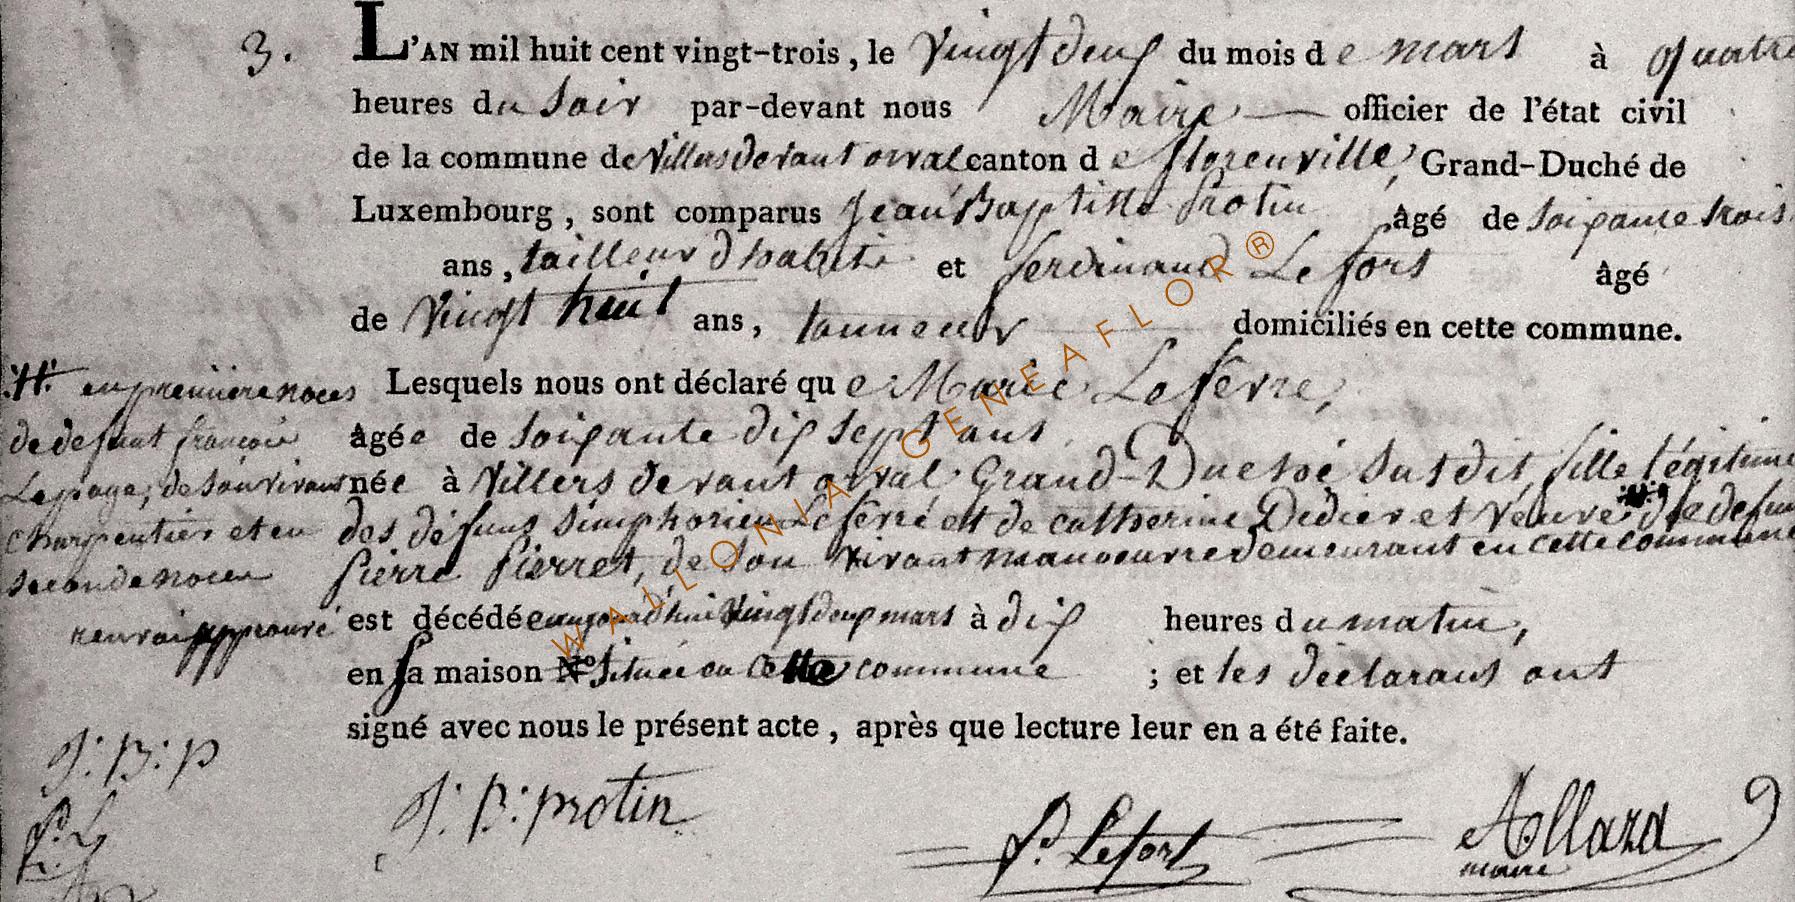 3. L'AN mil huit cent vingt-trois, le vingt deux du mois de mars à quatre
heures du soir par-devant nous Maire officier de l'état civil
de la commune de Villers devant orval canton de florenville, Grand-Duché de
Luxembourg, sont comparus Jean Baptiste Protin âgé de soixante trois
ans, tailleur d'habits et ferdinand Le fort âgé
de vingt huit ans, tanneur domiciliés en cette commune.
Lesquels nous ont déclaré que Marie Le ferre,
âgée de soixante dix sept ans
née à Villers devant orval Grand-Duché susdit, fille légitime
des défunts Simphorien Le ferre et de catherine Didier et Veuve de defunt
Pierre Pierret, de son vivant manoeuvre demeurant en cette commune
est décédée aujourd'hui vingt deux mars à dix heures du matin,
en sa maison N° située en cette commune ; et les déclarans ont
signé avec nous le présent acte, après que lecture leur en a été faite.
en premiere noces
de defunt françois
Lepage, de son vivant
charpentier et en
seconde noces
renvoi approuvé
J: B: P
J: B: protin
f. Lefort
Allard
maire
WALLONIA-GENEAFLOR®